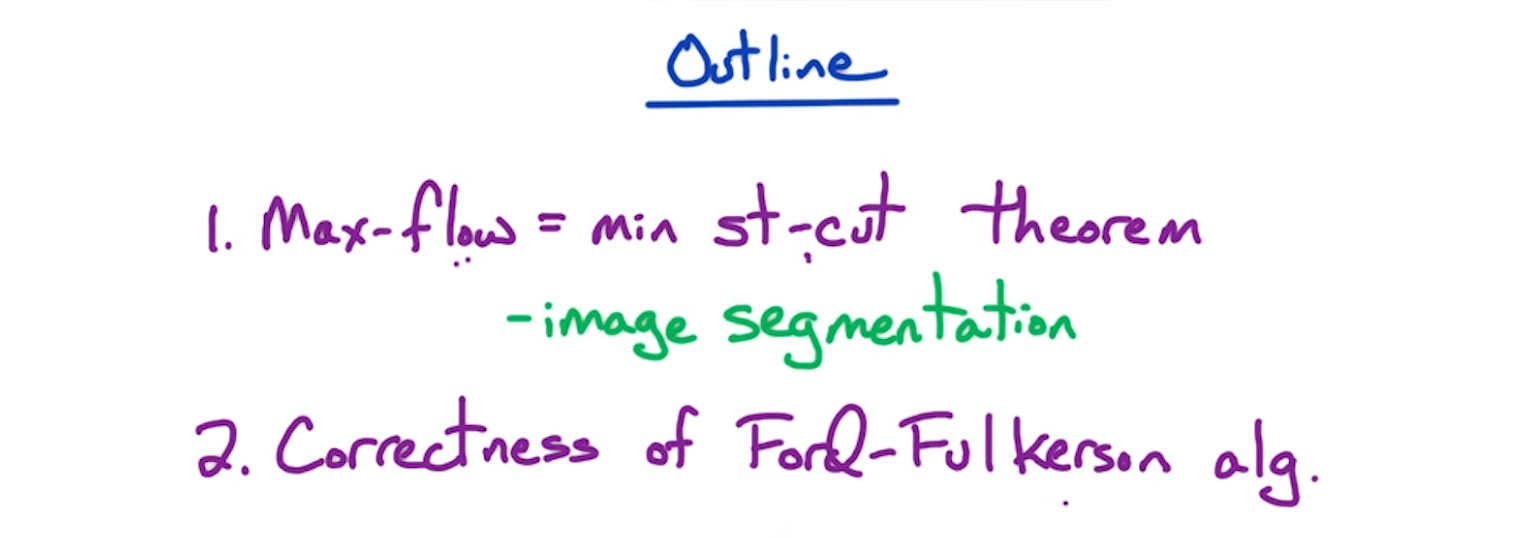 Outline
1. Max-flow = min st-cut theorem
-image segmentation
2. Correctness of Ford-Fulkerson alg.